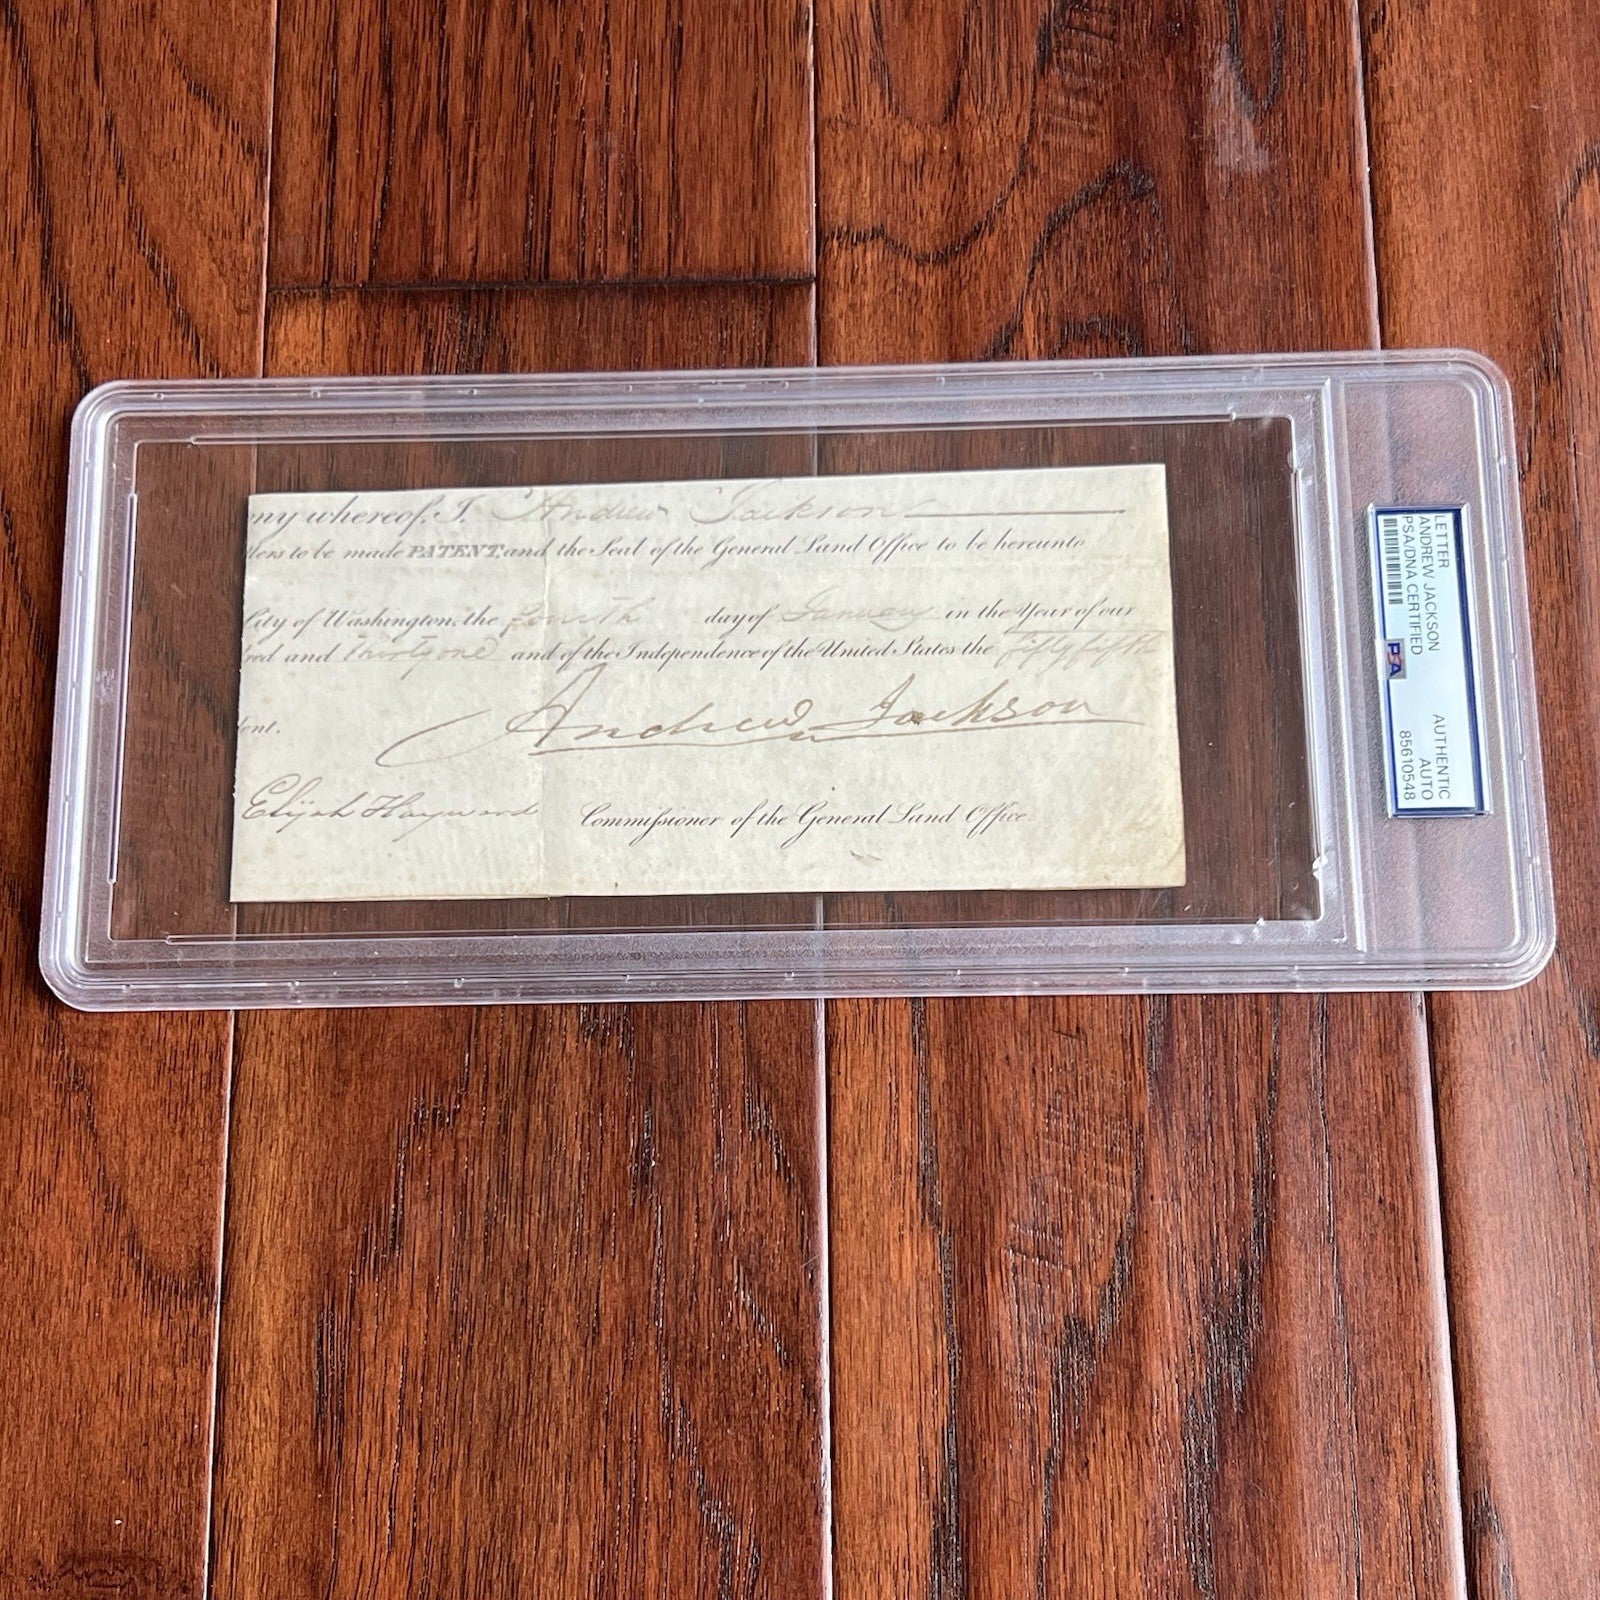 ny whereof, I, Andrew Jackson
tters to be made PATENT, and the Seal of the General Land Office to be hereunto
City of Washington, the fourth day of January in the Year of our
red and thirty one and of the Independence of the United States the fifty fifth
ent.
Andrew Jackson
Elijah Hayward Commissioner of the General Land Office
LETTER
ANDREW JACKSON
PSA/DNA CERTIFIED
PSA
AUTHENTIC
AUTO
85610548